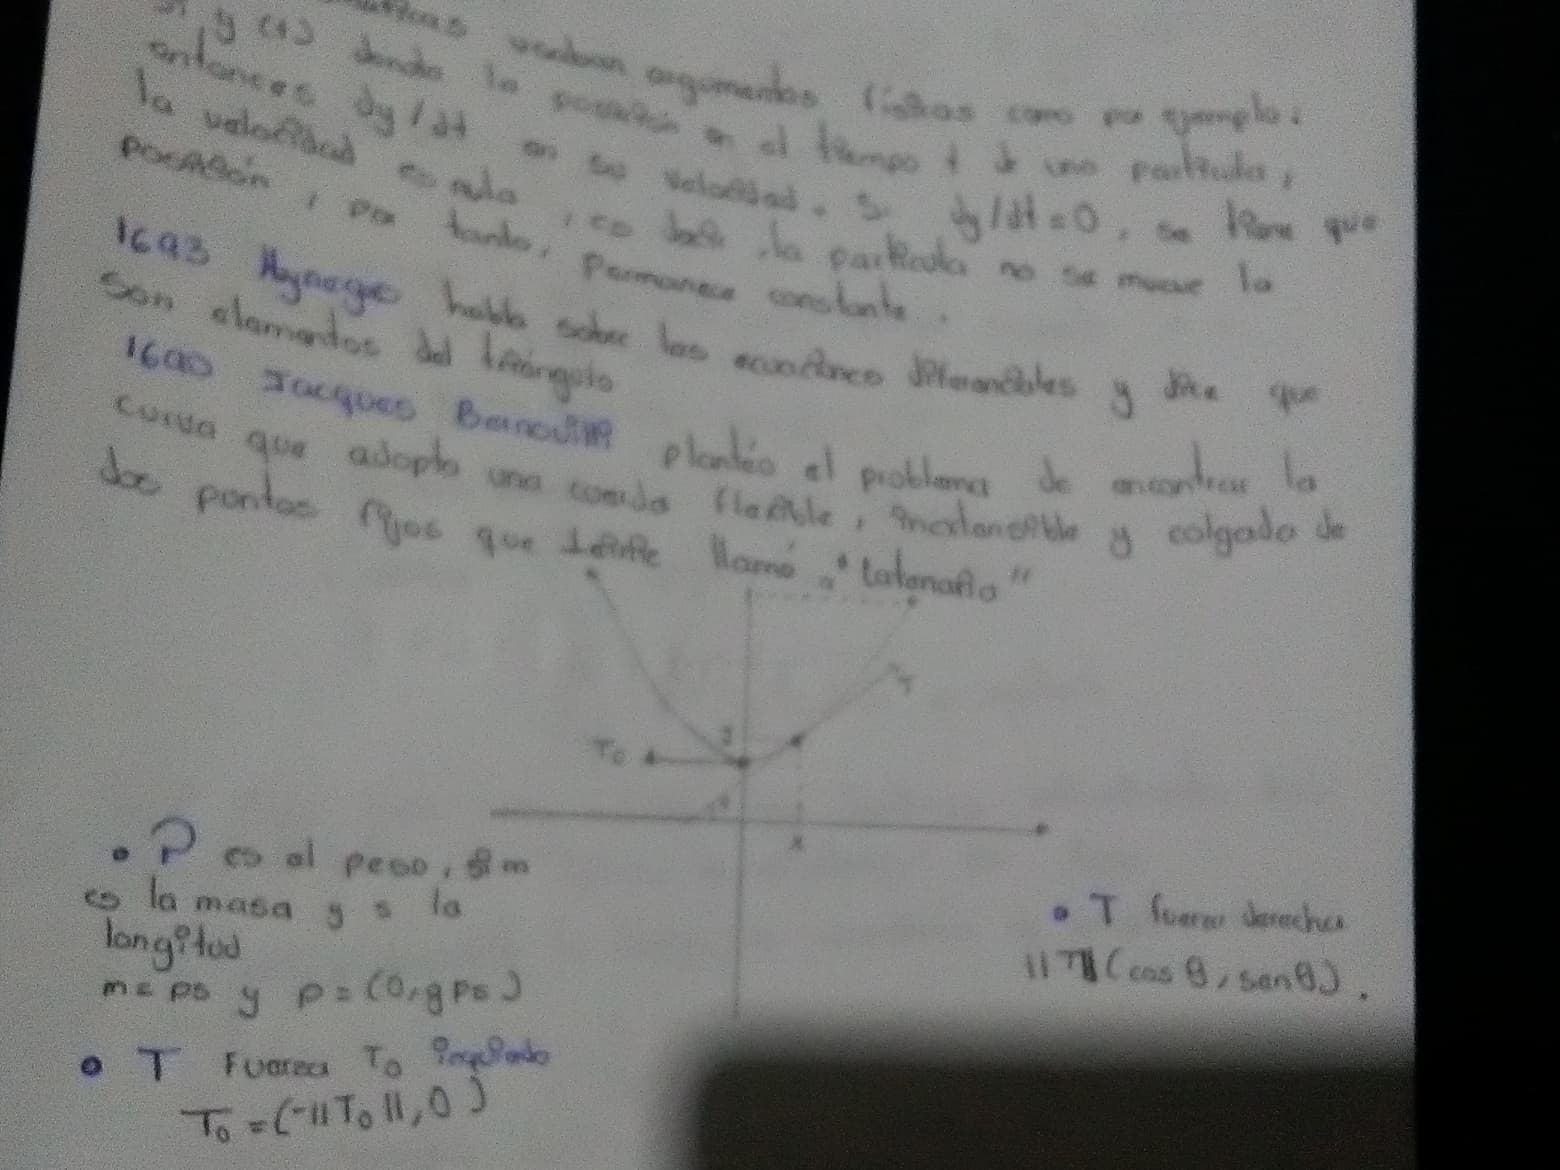 usaban argumentos físicos como por ejemplo:
Si y(t) donde la posición en el tiempo t de una partícula,
entonces dy/dt en su velocidad. Si dy/dt=0, se tiene que
la velocidad es nula, es decir, la partícula no se mueve la
posición, por tanto, permanece constante.
1693 habla sobre las ecuaciones diferenciables y dice que
son elementos del triángulo
1690 Jacques Bernoulli planteó el problema de encontrar la
curva que adopta una cuerda flexible, inextensible y colgada de
dos puntos fijos que llamó "Catenaria"
T
T0
x
• P es el peso, si m
es la masa y s la
longitud
m= ps y p=(0,-gps)
• T fuerza derecha
||T||(cos θ, sen θ).
• T Fuerza T0 izquierda
T0=(-||T0||,0)